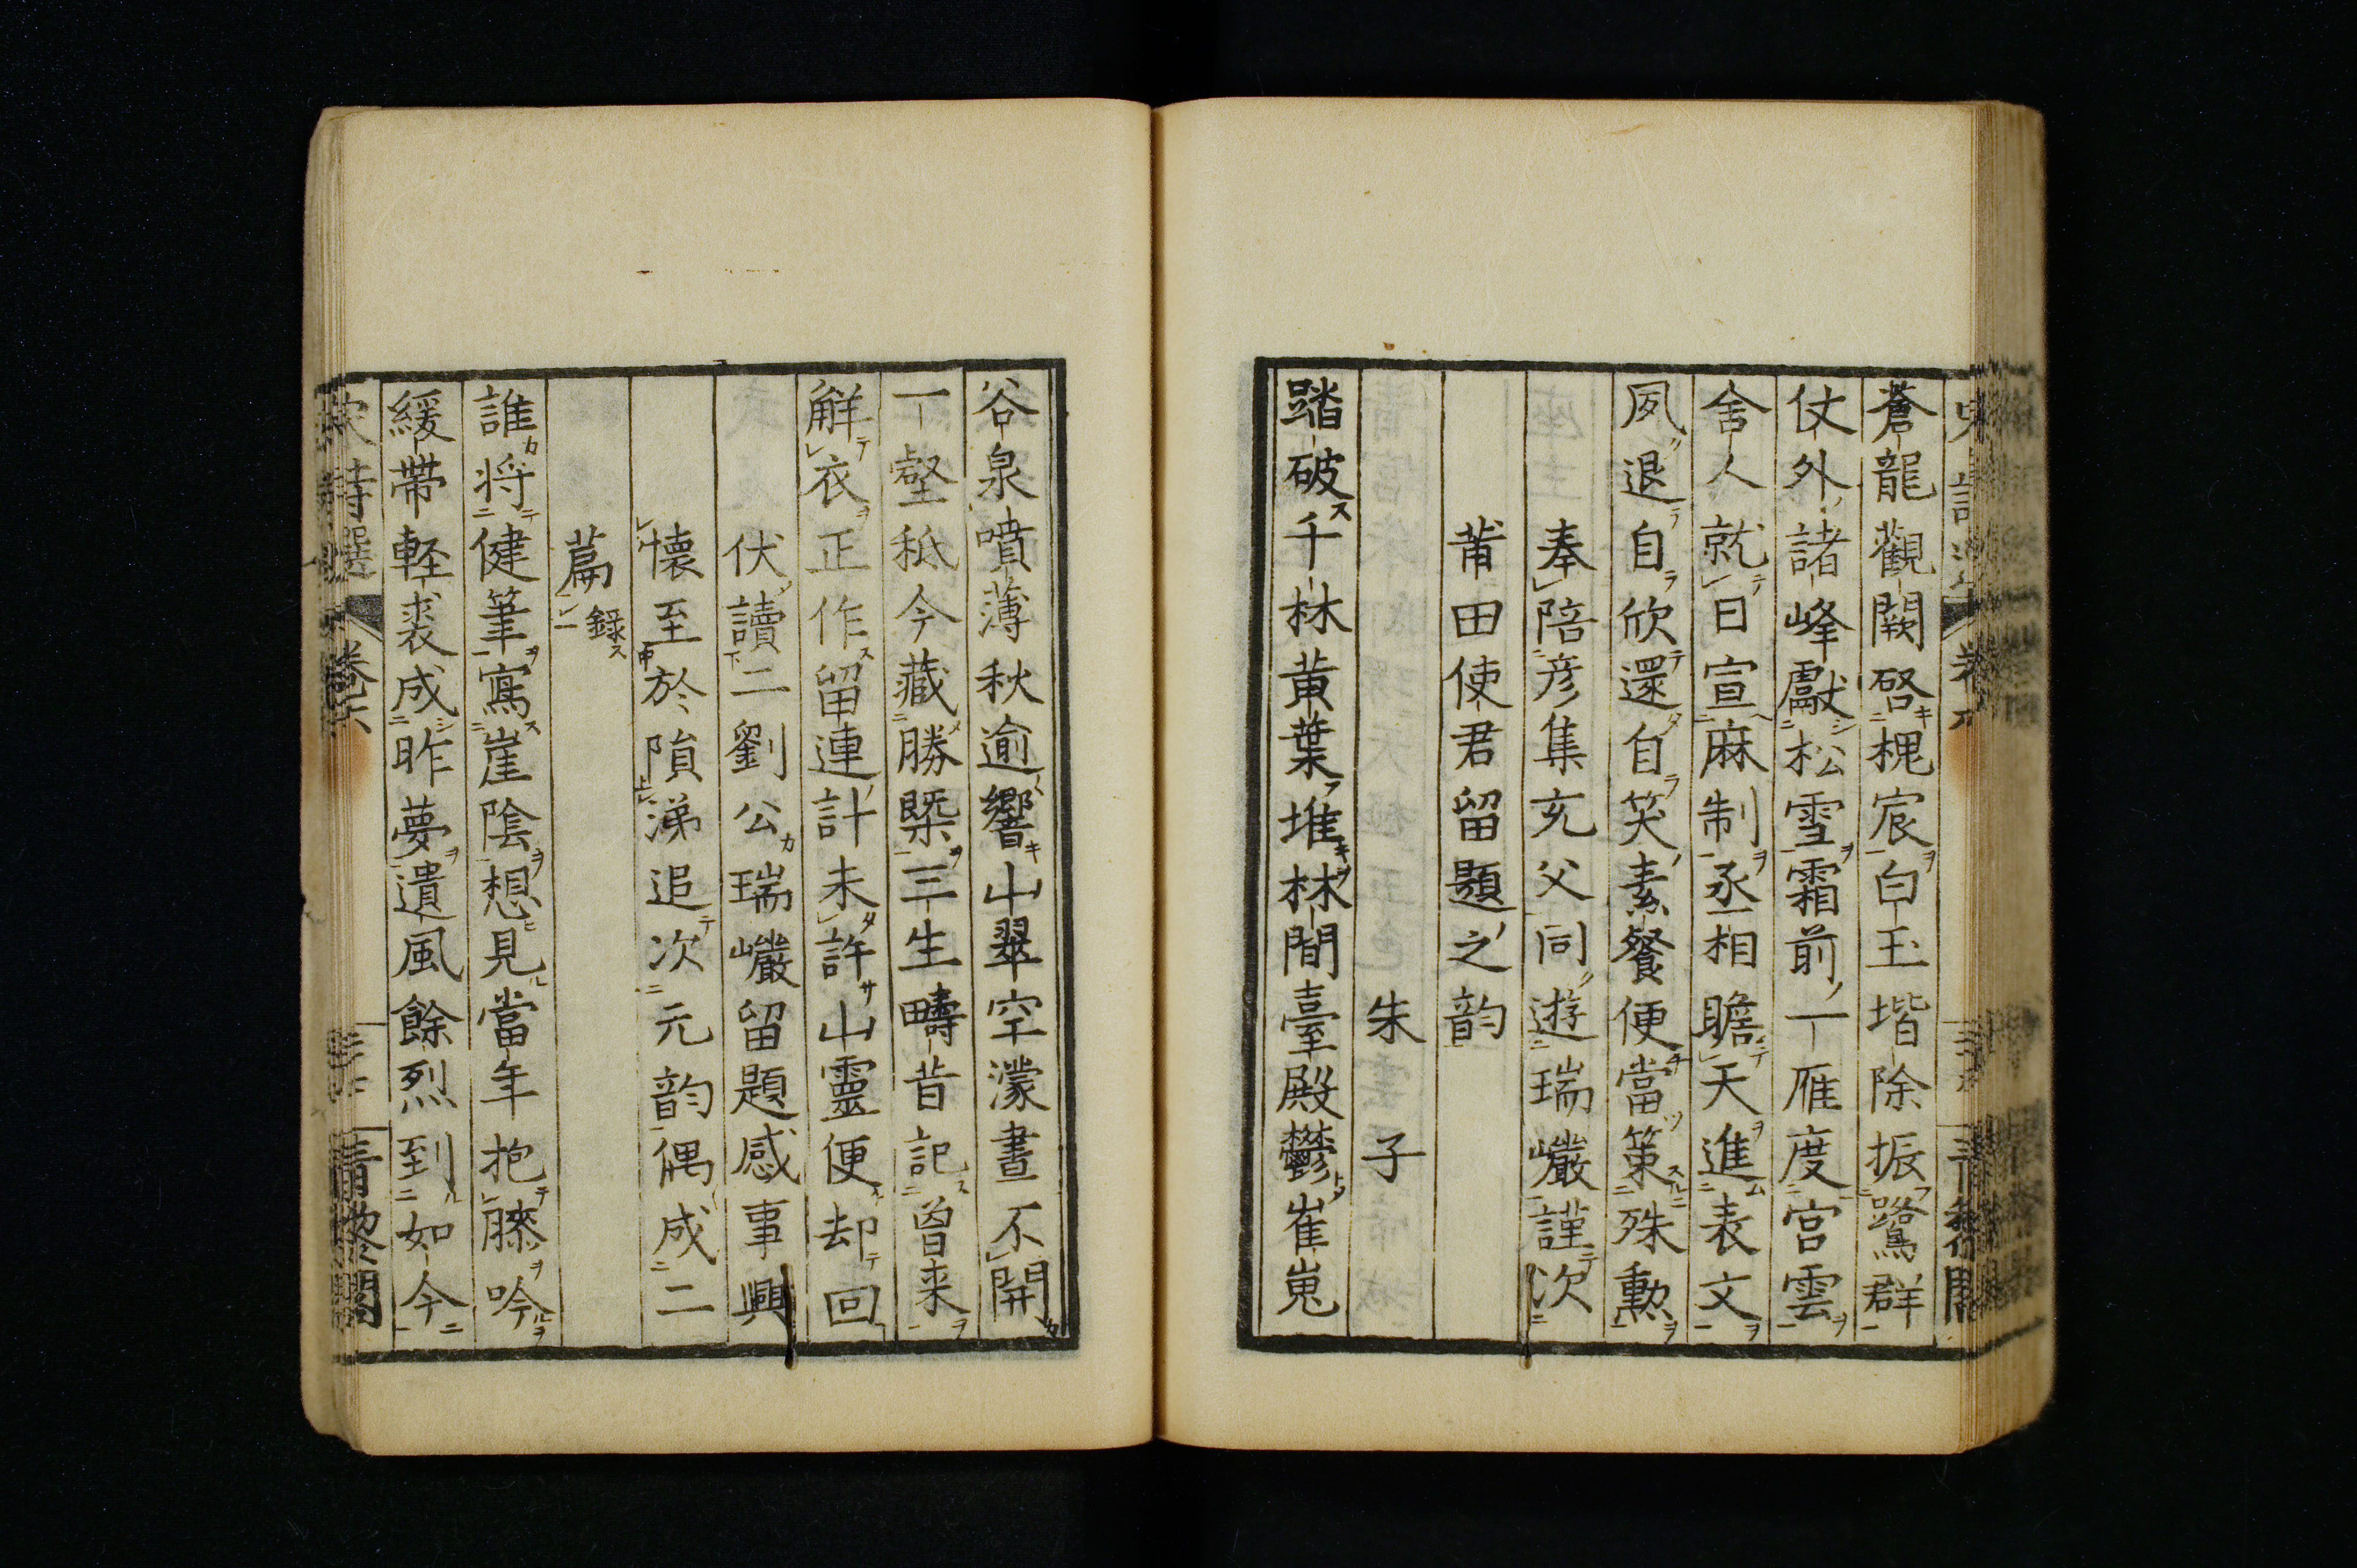 蒼龍觀闕啓槐宸白玉堦除振鷺群
仗外諸峰獻松雪霜前一雁度宮雲
舍人就日宣麻制丞相瞻天進表文
夙退自欣還自笑素餐便當策殊勲
奉陪彦集充父同遊瑞巖謹次
莆田使君留題之韵
朱子
踏破千林黄葉堆林間臺殿欝崔嵬
谷泉噴薄秋逾響山翠空濛晝不開
一壑秖今藏勝槩三生疇昔記曽来
觧衣正作留連計未許山靈便却回
伏讀二劉公瑞巖留題感事興
懷至於隕涕追次元韵偶成二
篇 録一
誰将健筆寫崖陰想見當年抱膝吟
緩帶軽裘成昨夢遺風餘烈到如今
宋詩選 卷六 青藜閣